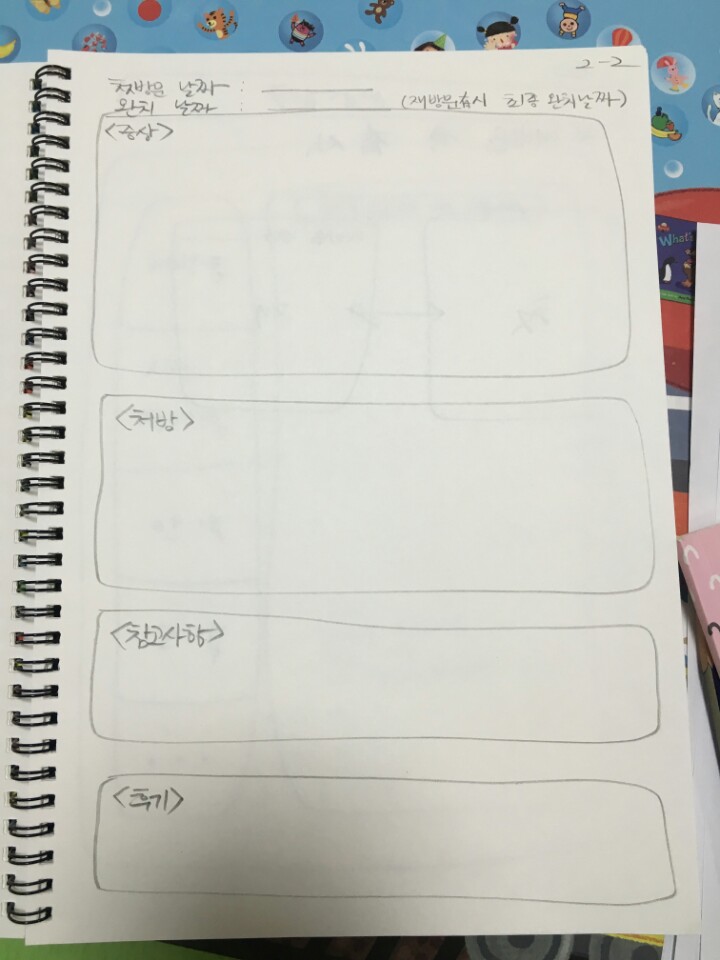 2-2
첫방문 날짜 :
완치 날짜 : (재방문시 최종 완치날짜)
<증상>
<처방>
<참고사항>
<후기>
What's